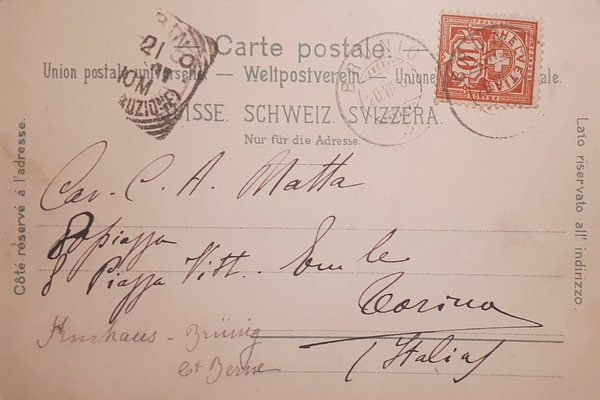 Carte postale.
Union postale universelle. — Weltpostverein — Unione postale.
SUISSE. SCHWEIZ. SVIZZERA.
Nur für die Adresse.
Côté réservé à l'adresse.
Lato riservato all' indirizzo.
FRANCO
HELVETIA
10
BRÜNIG
TORINO
21
10M
Cav. C. A. Matta
8 piazza
8 Piazza Vitt. Em le
Torino
(Italia)
Kurhaus - Brünig
Ct Berne